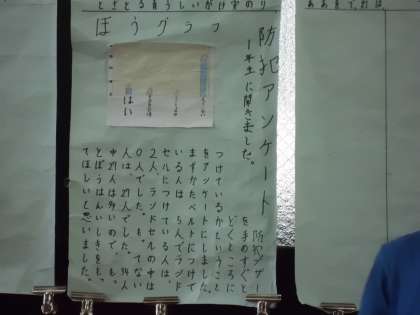 ぼうグラフ
防犯アンケート
1年生に聞きました。
はい
防犯ブザー
を手のすぐと
どくところに
つけているかということ
をアンケートにしました。
ますかたベルトにつけて
いる人は 5人でランド
セルにつけている人は、
2人、ランドセルの中は
0人でした。もってない
人は 27人でした。34人
中27人は多いので もっ
とぼうはんいしきをもっ
てほしいと思いました。